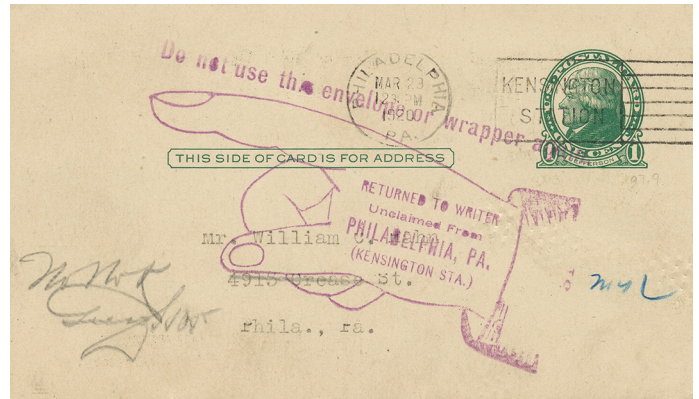 Do not use this envelope or wrapper a
PHILADELPHIA
MAR 23
PM
1920
PA.
KENSINGTON
STATION
U.S. POSTAL CARD
JEFFERSON
1 ONE CENT 1
THIS SIDE OF CARD IS FOR ADDRESS
RETURNED TO WRITER
Unclaimed From
PHILADELPHIA, PA.
(KENSINGTON STA.)
Mr. William C.
4915 Crease St.
Phila., Pa.